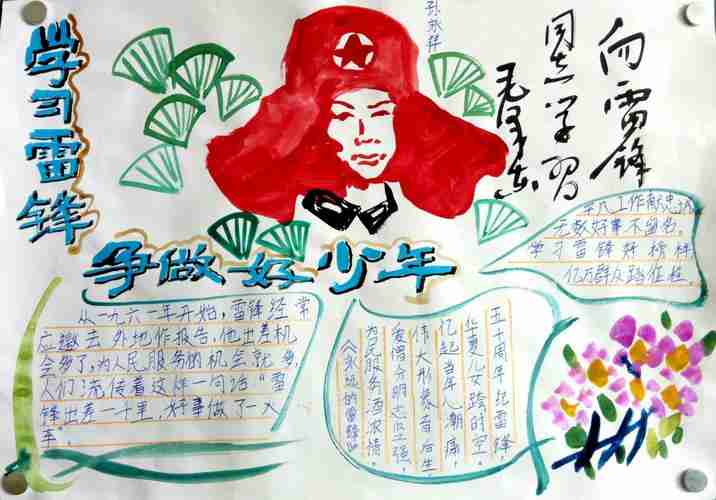 学习雷锋
向雷锋
同志学习
毛泽东
争做好少年
平凡工作献忠诚
无数好事不留名。
学习雷锋好榜样
亿万群众踏征程。
从一九六一年开始,雷锋经常
应邀去外地作报告,他出差机
会多了,为人民服务的机会就多,
人们流传着这样一句话“雷
锋出差一千里,好事做了一火
车。
五十周年纪雷锋,
华夏儿女跨时空。
忆起当年心潮痛,
伟大形象育后生,
爱憎分明志坚强,
为民服务洒浓情,
《永远的雷锋》